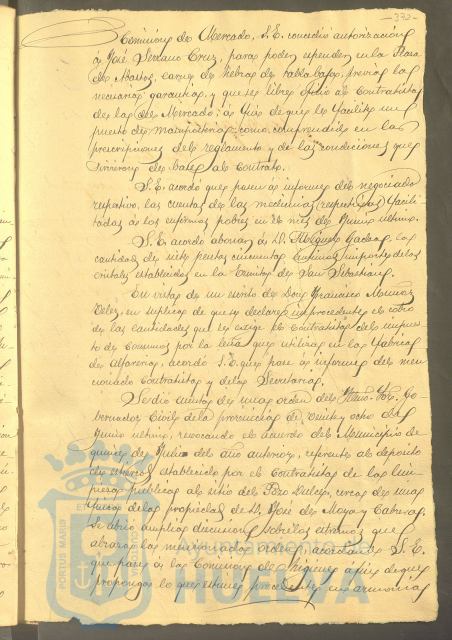 - 372 -
Comisión de Mercado, S.E. concedió autorización
á José Serrano Cruz, para poder espender en la Plaza
de Abastos, carne de hebra de tabla baja, previas las
necesarias garantias, y que se libre oficio al Contratista
de las del Mercado, á fin de que le facilite un
puesto de mamposteria, como comprendido en las
prescripciones del reglamento y de las condiciones que
sirvieron de base al Contrato.
S.E. acordó que pasen á informe del negociado
respectivo, las cuentas de las medicinas facili-
tadas á los enfermos pobres en el mes de Junio ultimo.
S.E. acordó abonar á D. Miguel Gadea, la
cantidad de siete pesetas cincuenta centimos importe de los
cristales establecidos en la Ermita de San Sebastian.
En vista de un escrito de Don Francisco Muñoz
Velez, en suplica de que se declare improcedente el cobro
de las cantidades que le exige el Contratista del impues-
to de Consumos por la leña que utiliza en la fabrica
de Alfareria, acordó S.E. que pase á informe del men-
cionado Contratista y de la Secretaria.
Se dió cuenta de una orden del Iltmo. Sor. Go-
bernador Civil de la provincia de veinte y ocho de
Junio ultimo, revocando el acuerdo del Municipio de
quince de Julio del año anterior, referente al deposito
de estiercol establecido por el Contratista de las lim-
piezas publicas al sitio del Pozo Dulce, cerca de una
finca de la propiedad de D. José de Moya y Cabezas.
Se abrió amplia discusion sobre los estremos que
abraza la mencionada orden, acordando S.E.
que pase á la Comision de Higiene á fin de que
proponga lo que estime procedente en armonia
PORTUS MARIS
ET
Ayuntamiento de
HUELVA